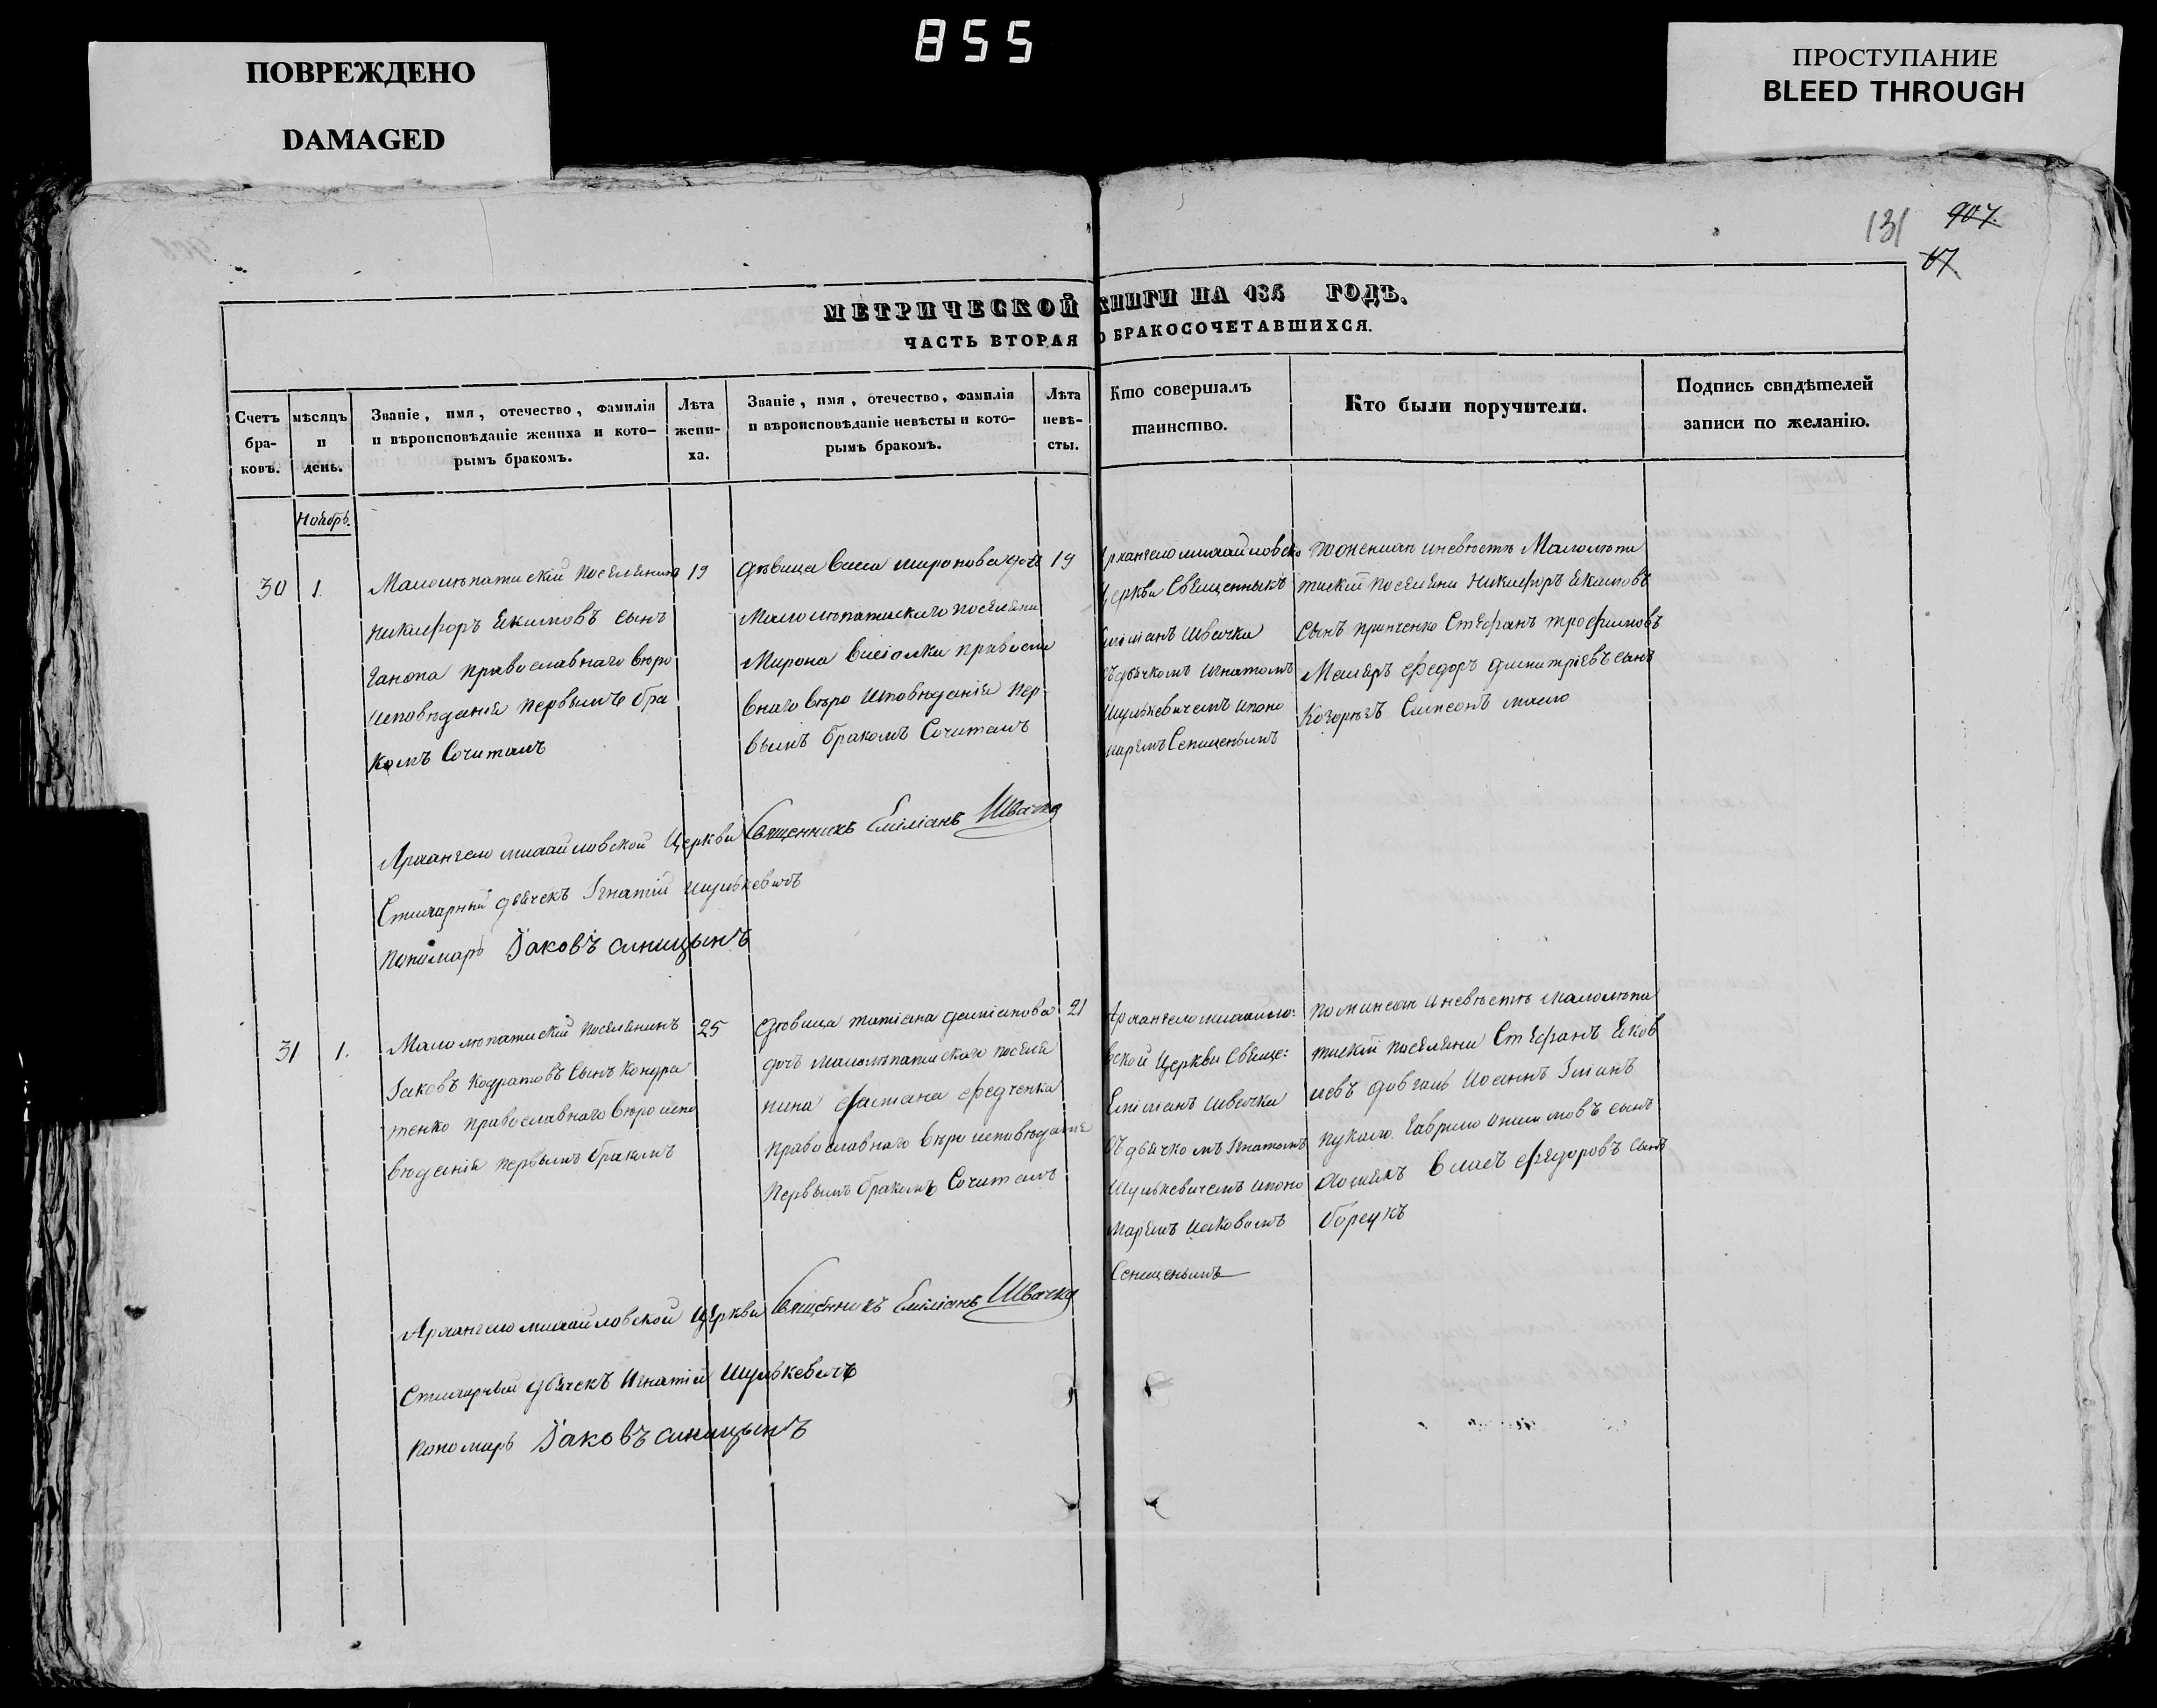 855
ПОВРЕЖДЕНО
DAMAGED
ПРОСТУПАНИЕ
BLEED THROUGH
131 907.
67
МЕТРИЧЕСКОЙ КНИГИ НА 185 ГОДЪ.
ЧАСТЬ ВТОРАЯ О БРАКОСОЧЕТАВШИХСЯ.
Счетъ
бра-
ковъ.
мѣсяцъ
и
день.
Званіе, имя, отечество, фамилія
и вѣроисповѣданіе жениха и кото-
рымъ бракомъ.
Лѣта
жени-
ха.
Званіе, имя, отечество, фамилія
и вѣроисповѣданіе невѣсты и кото-
рымъ бракомъ.
Лѣта
невѣ-
сты.
Кто совершалъ
таинство.
Кто были поручители.
Подпись свидѣтелей
записи по желанію.
Ноябрь.
30 1.
Малолѣпатискій поселянинъ
Никифоръ Екимовъ сынъ
Ганопа православнаго вѣро
исповѣданія первымъ бра
комъ Сочитанъ
19
Дѣвица Васса Миронова дочь
Малолѣпатискаго поселяни
Мирона православ
внаго вѣро исповѣданія пер
вымъ бракомъ Сочитанъ
19
Архангело михайловско
Церкви Священникъ
Емілianъ Швачка
съ дьячкомъ Игнатомъ
Шулькевичемъ ипоно
маремъ Сеницынымъ
по женихѣ иневѣстѣ Малолѣпа
тискій поселяни Никифоръ Екимовъ
сынъ Стефанъ трофимовъ
Федоръ димитріевъ сынъ
Симеонъ
Архангело михайловской Церкви Священникъ Емиліанъ Швачка
Стихарный дьячекъ Ігнатій Шулькевичъ
Пономарь Іаковъ синицынъ
31 1.
Малолѣпатискій поселянинъ
Іаковъ Кодратовъ Сынъ Кондра
тенко православнаго вѣро испо
вѣданія первымъ бракомъ
25
Дѣвица татіана даміанова
дочь малолѣпатискаго поселя
нина федченка
православнаго вѣро исповѣданія
Первымъ бракомъ Сочитанъ
21
Архангело михайло:
вской Церкви Свяще:
Емиліанъ Швачка
съ дьячкомъ Ігнатомъ
Шулькевичемъ ипоно
маремъ Иаковомъ
Сеницынымъ
по женихѣ иневѣстѣ малолѣпа
тискій поселяни Стефанъ Еков
левъ довгаль Иоаннъ
Гаврило сынъ
Власъ федоровъ сынъ
Борецкъ
Архангело михайловской Церкви Священникъ Емиліанъ Швачка
Стихарный дьячекъ Игнатій Шулькевичъ
Пономарь Іаковъ синицынъ